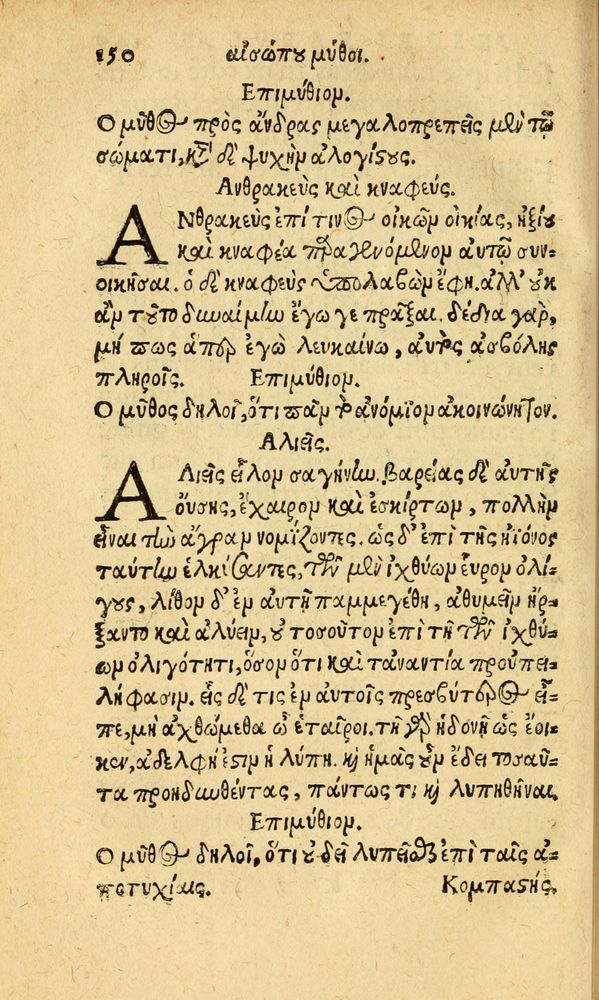 150 αἰσώπου μῦθοι.
Επιμύθιον.
Ο μῦθος πρὸς ἄνδρας μεγαλοπρεπεῖς μὲν τῷ
σώματι, κατὰ δὲ ψυχὴν ἀλογίστους.
Ανθρακεὺς καὶ κναφεύς.
ΑΝθρακεὺς ἐπί τινος οἰκῶν οἰκίας, ἠξίου
καὶ κναφέα παραγενόμενον αὐτῷ συν-
οικῆσαι. ὁ δὲ κναφεὺς ὑπολαβὼν ἔφη. ἀλλ' οὐκ
ἂν τοῦτο δυναίμην ἔγωγε πρᾶξαι. δέδια γὰρ,
μή πως ἅπερ ἐγὼ λευκαίνω, αὐτὸς ἀσβόλης
πληροῖς. Επιμύθιον.
Ο μῦθος δηλοῖ, ὅτι πᾶν τὸ ἀνόμοιον ἀκοινώνητον.
Αλιεῖς.
ΑΛιεῖς εἷλκον σαγήνην. βαρείας δὲ αὐτῆς
οὔσης, ἔχαιρον καὶ ἐσκίρτων, πολλὴν
εἶναι τὴν ἄγραν νομίζοντες. ὡς δ' ἐπὶ τῆς ἠϊόνος
ταύτην ἑλκύσαντες, τῶν μὲν ἰχθύων εὗρον ὀλί-
γους, λίθον δ' ἐν αὐτῇ παμμεγέθη, ἀθυμεῖν ἤρ-
ξαντο καὶ ἀλύειν, οὐ τοσοῦτον ἐπὶ τῇ τῶν ἰχθύ-
ων ὀλιγότητι, ὅσον ὅτι καὶ τἀναντία προϋπει-
λήφασιν. εἷς δέ τις ἐν αὐτοῖς πρεσβύτερος εἶ-
πε, μὴ ἀχθώμεθα ὦ ἑταῖροι. τῇ γὰρ ἡδονῇ ὡς ἔοι-
κεν, ἀδελφή ἐστιν ἡ λύπη. καὶ ἡμᾶς οὖν ἔδει τοσαῦ-
τα προησθέντας, πάντως τι καὶ λυπηθῆναι.
Επιμύθιον.
Ο μῦθος δηλοῖ, ὅτι οὐ δεῖ λυπεῖσθαι ἐπὶ ταῖς ἀ-
ποτυχίαις. Κομπαστής.